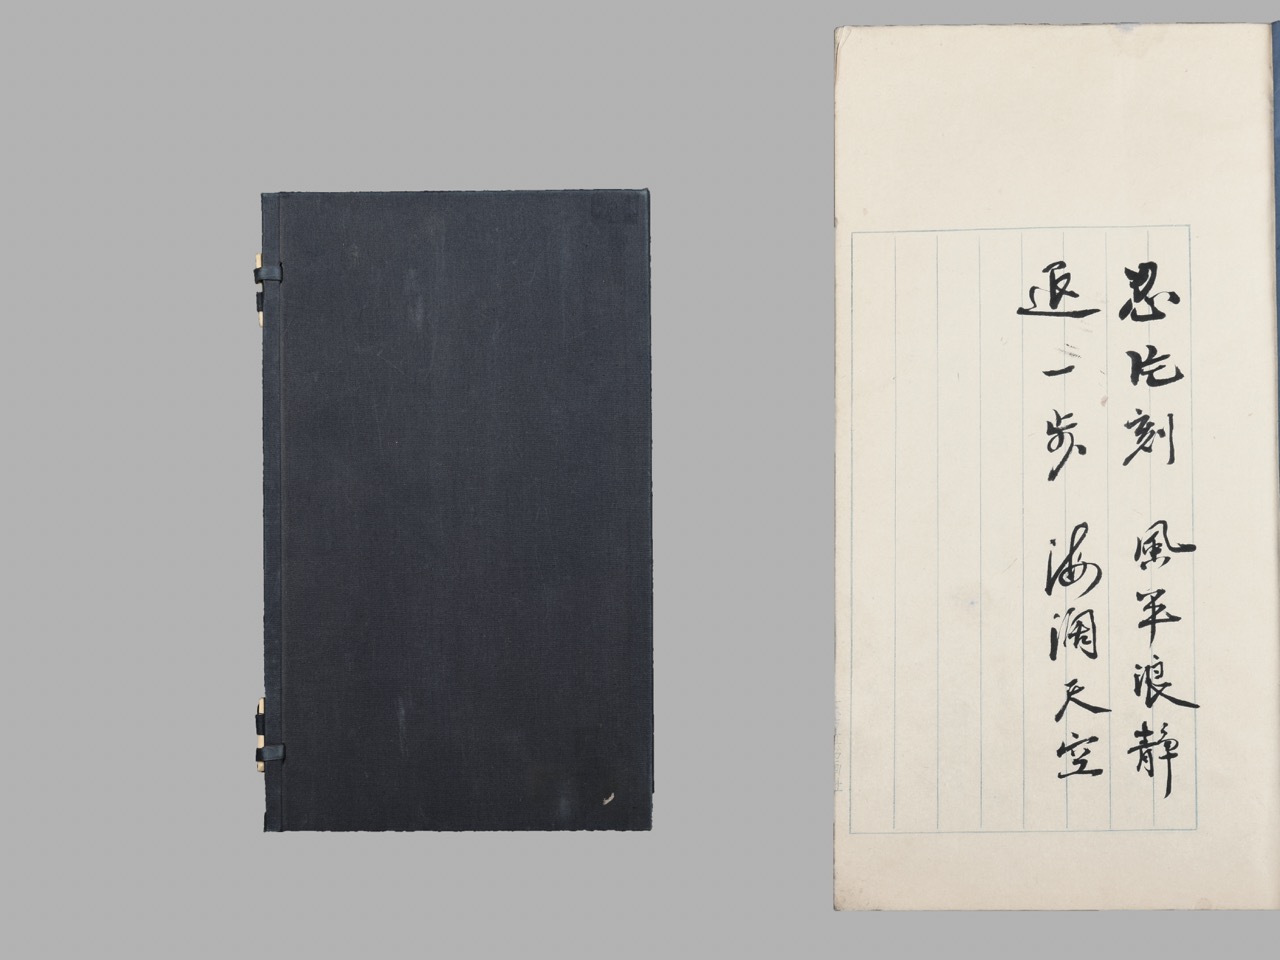 忍片刻 風平浪靜
退一步 海濶天空